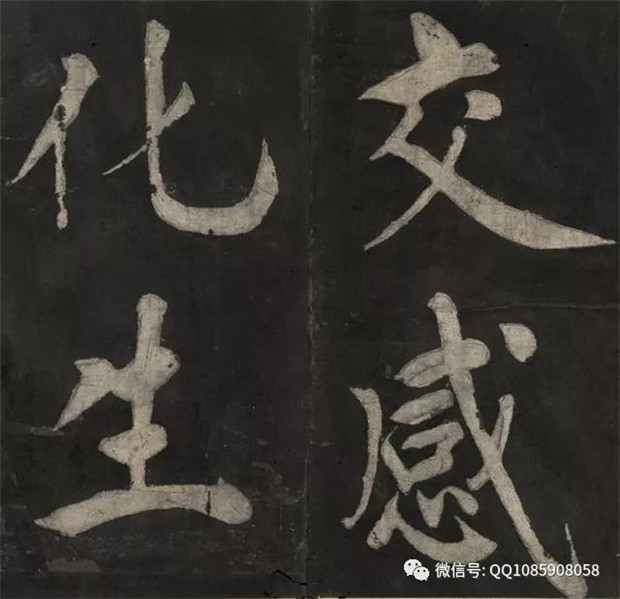 交感
化生
微信号: QQ1085908058